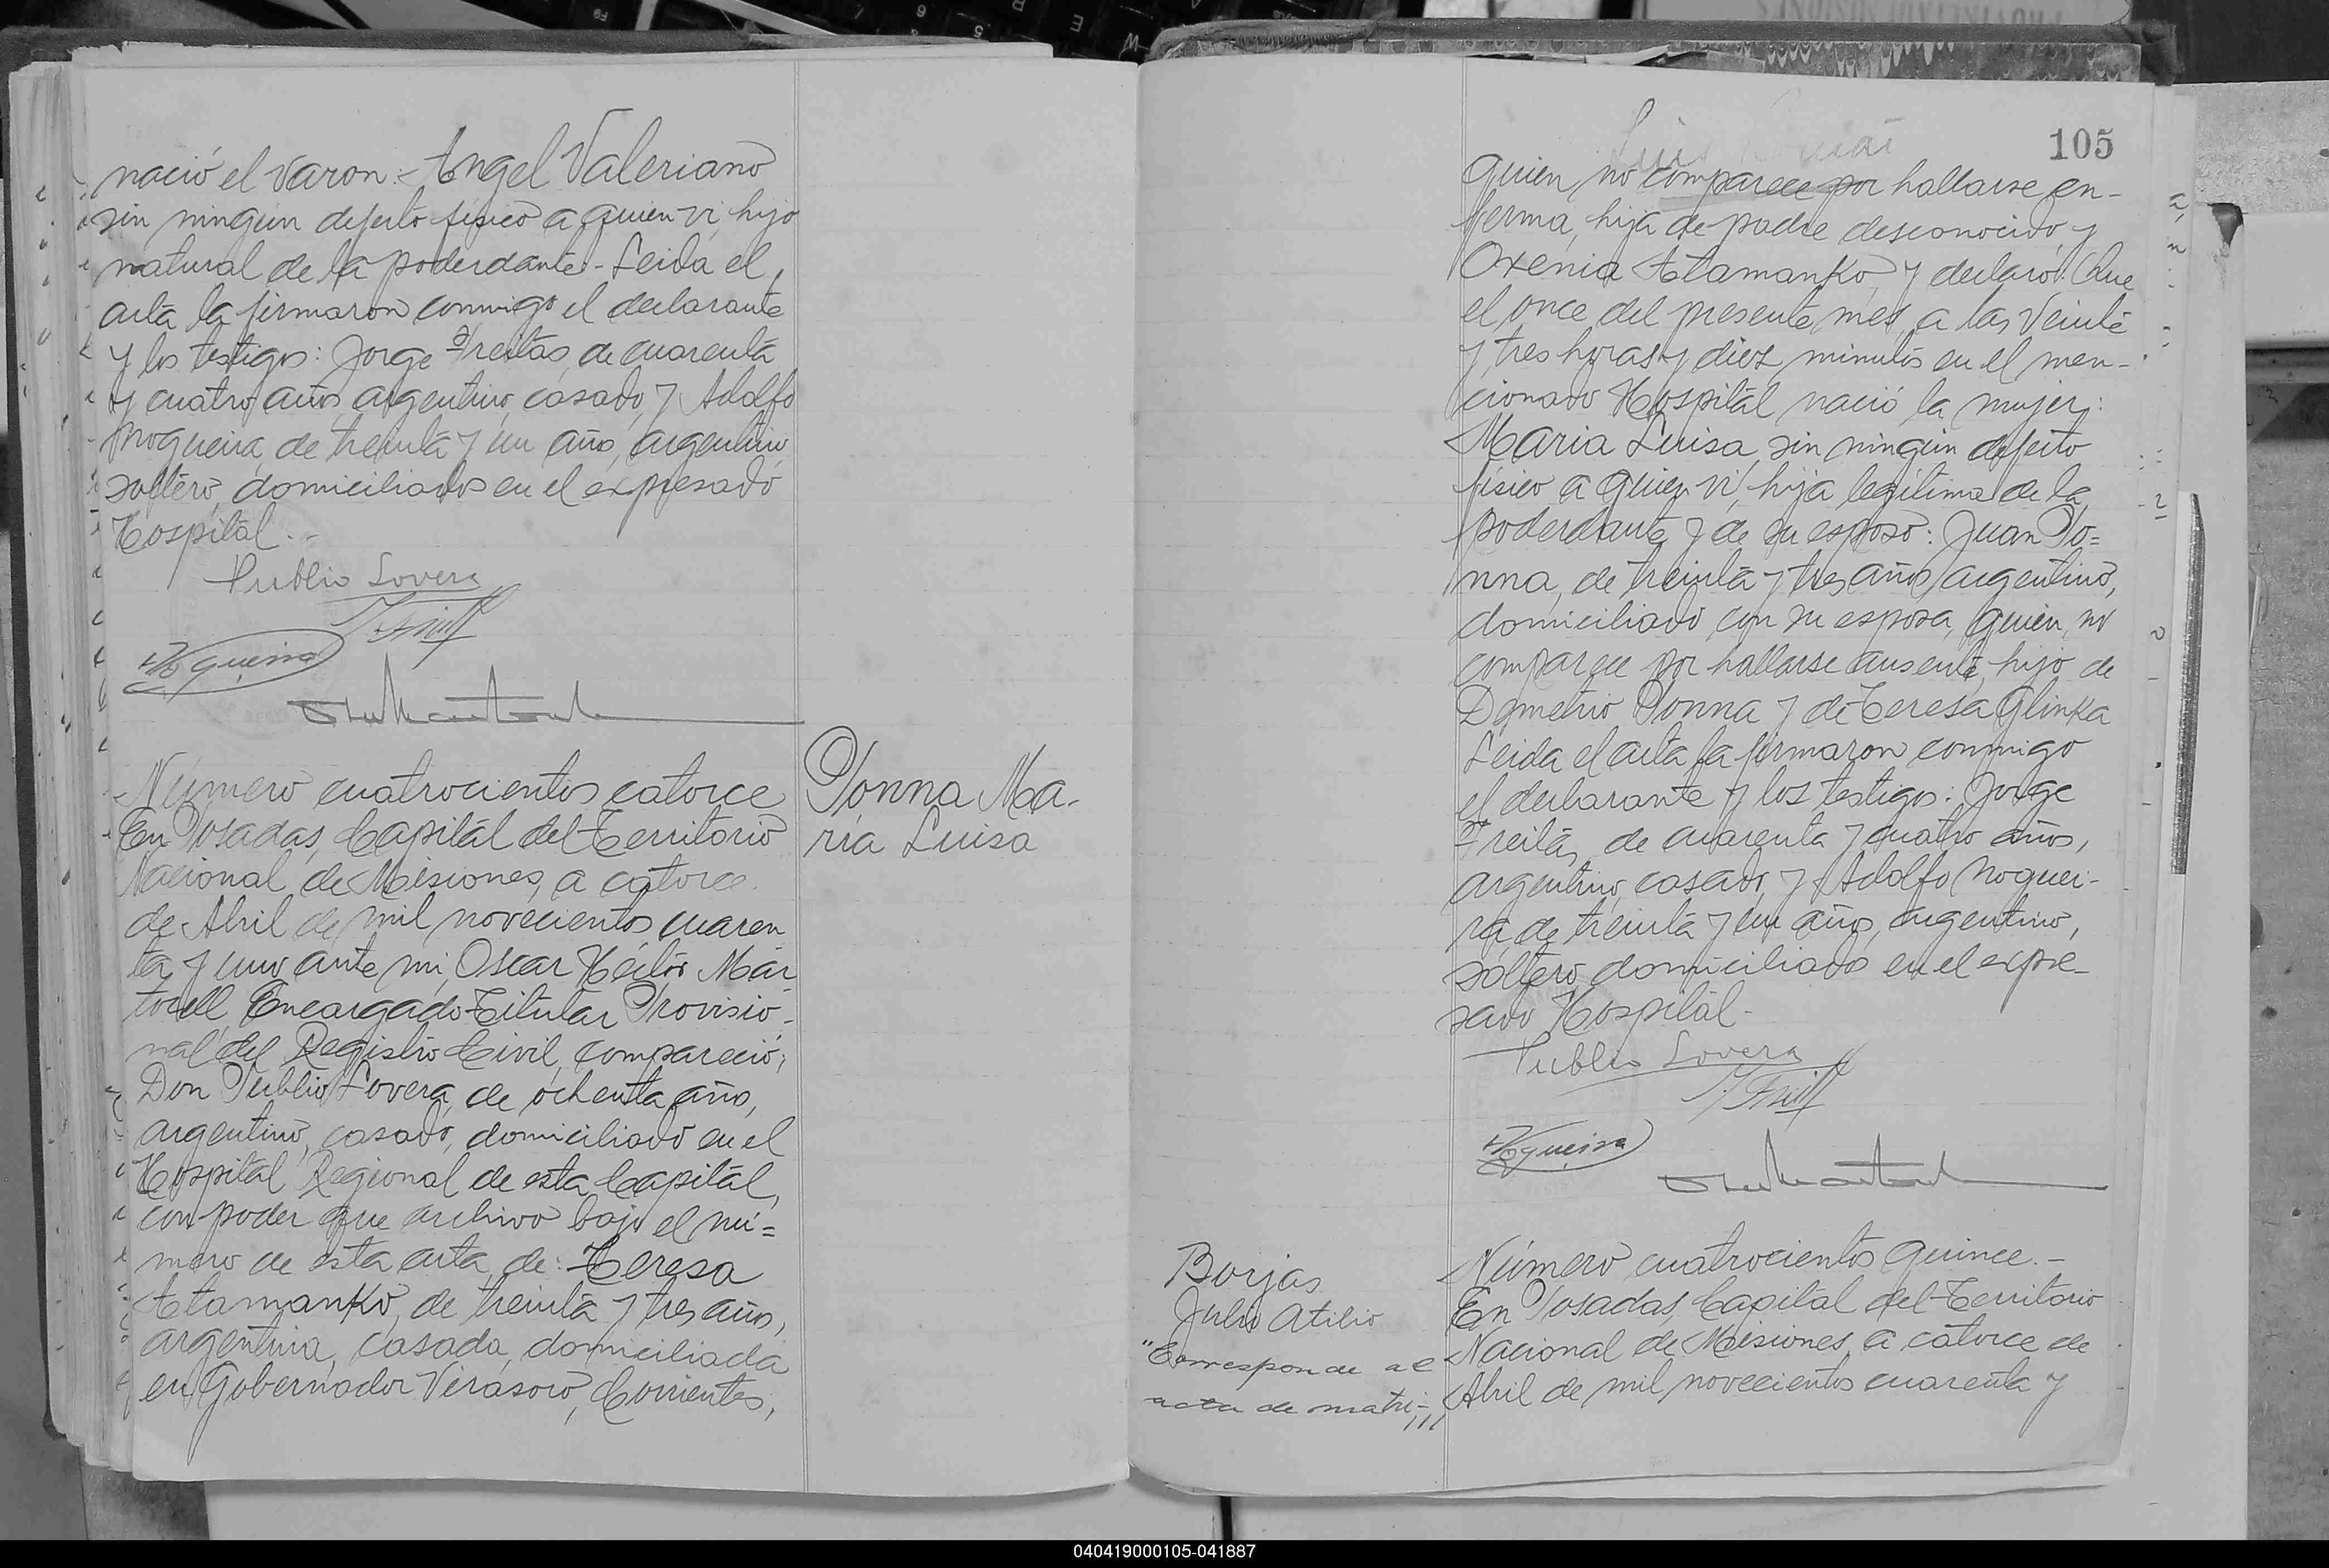 nació el varon:- Angel Valeriano
sin ningun defecto fisico a quien vi, hijo
natural de la poderdante - Leida el
acta la firmaron conmigo el declarante
y los testigos: Jorge Freitas, de cuarenta
y cuatro años, argentino, casado, y Adolfo
Nogueira, de treinta y un año, argentino
soltero, domiciliados en el expresado
Hospital.-
Publio Lovera
Nogueira
Número cuatrocientos catorce
En Posadas, Capital del Territorio
Nacional de Misiones, a catorce
de Abril de mil novecientos cuaren
ta y uno ante mi, Oscar Héctor Mar
torell, Encargado Titular Provisio-
nal del Registro Civil, compareció:
Don Publio Lovera, de ochenta año,
argentino, casado, domiciliado en el
Hospital Regional de esta Capital,
con poder que archivo bajo el nú=
mero de esta acta, de: Teresa
Atamanko, de treinta y tres años,
argentina, casada, domiciliada
en Gobernador Virasoro, Corrientes,
Ponna Ma-
ria Luisa
105
quien no comparece por hallarse en-
ferma, hija de padre desconocido, y
Oxenia Atamanko, y declaró: Que
el once del presente mes, a las veinte
y tres horas y diez minutos en el men-
cionado Hospital nació la mujer:
Maria Luisa, sin ningun defecto
fisico a quien vi, hija legitima de la
poderdante, y de su esposo: Juan Po=
nna, de treinta y tres años, argentino,
domiciliado con su esposa, quien no
comparece por hallarse ausente, hijo de
Demetrio Ponna y de Teresa Glinka
Leida el acta la firmaron conmigo
el declarante y los testigos: Jorge
Freitas, de cuarenta y cuatro años,
argentino, casado, y Adolfo Noguei-
ra de treinta y un año, argentino,
soltero, domiciliados en el expre-
sado Hospital-
Publio Lovera
Nogueira
Borjas
Julio Atilio
"Corresponde al
acta de matri-,,,
Número cuatrocientos quince.-
En Posadas, Capital del Territorio
Nacional de Misiones, a catorce de
Abril de mil novecientos cuarenta y
040419000105-041887